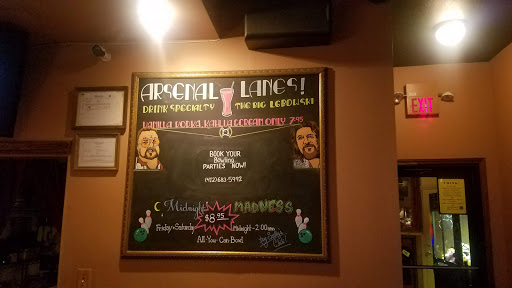 ARSENAL LANES!
DRINK SPECIALTY THE BIG LEBOWSKI
VANILLA VODKA, KAHLUA & CREAM ONLY 7.95
BOOK YOUR
Bowling
PARTIES NOW!
(412) 683-5992
Midnight MADNESS
$8.95
Friday & Saturday Midnight - 2:00am
All-You-Can Bowl
EXIT